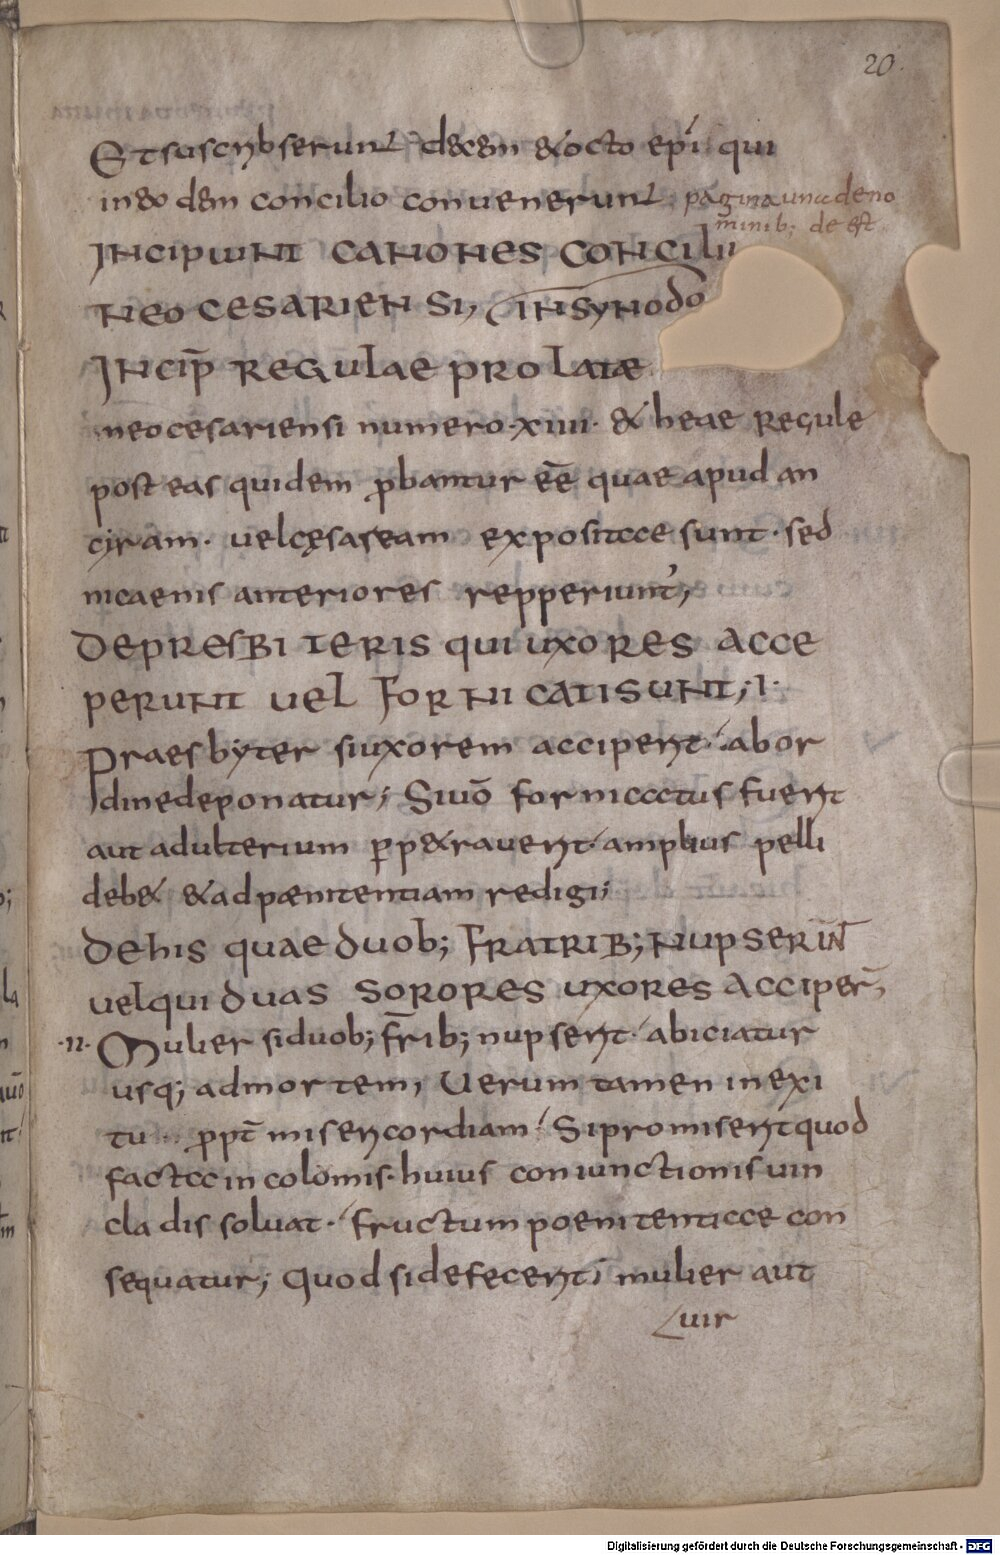 20.
Et suscribserunt decem & octo epi qui
in eodem concilio convenerunt pagina una deno
minib; deest
INCIPIUNT CANONES CONCILII
NEOCESARIENSI, IN SYNODO
INCIP̄ REGULAE PROLATAE
neocesariensi numero·xiiii· & heae Regule
post eas quidem ꝓbantur eē quae apud an
cyram· vel cęsaream expositae sunt· sed
nicaenis anteriores repperiunt᾽;
DE PRESBITERIS QUI UXORES ACCE
PERUNT UEL FORNICATI SUNT; I·
Praesbyter si uxorem acciperit· ab or
dine deponatur; Si uō fornicatus fuerit
aut adulterium ꝑp&raverit· amplius pelli
deb& & ad paenitentiam redigi;
DE his quae duob; FRATRIB; NUPSERIN̄
uel qui duas SORORES UXORES ACCIPER̄,
·II· Mulier si duob; fr̄ib; nupserit· abiciatur
usq; ad mortem, Verum tamen in exi
tu ꝓpt̄ misericordiam· Si promiserit quod
facta incolomis· huius coniunctionis uin
cla dissoluat· fructum poenitentiae con
sequatur; Quod si defecerit mulier aut
uir
Digitalisierung gefördert durch die Deutsche Forschungsgemeinschaft - DFG